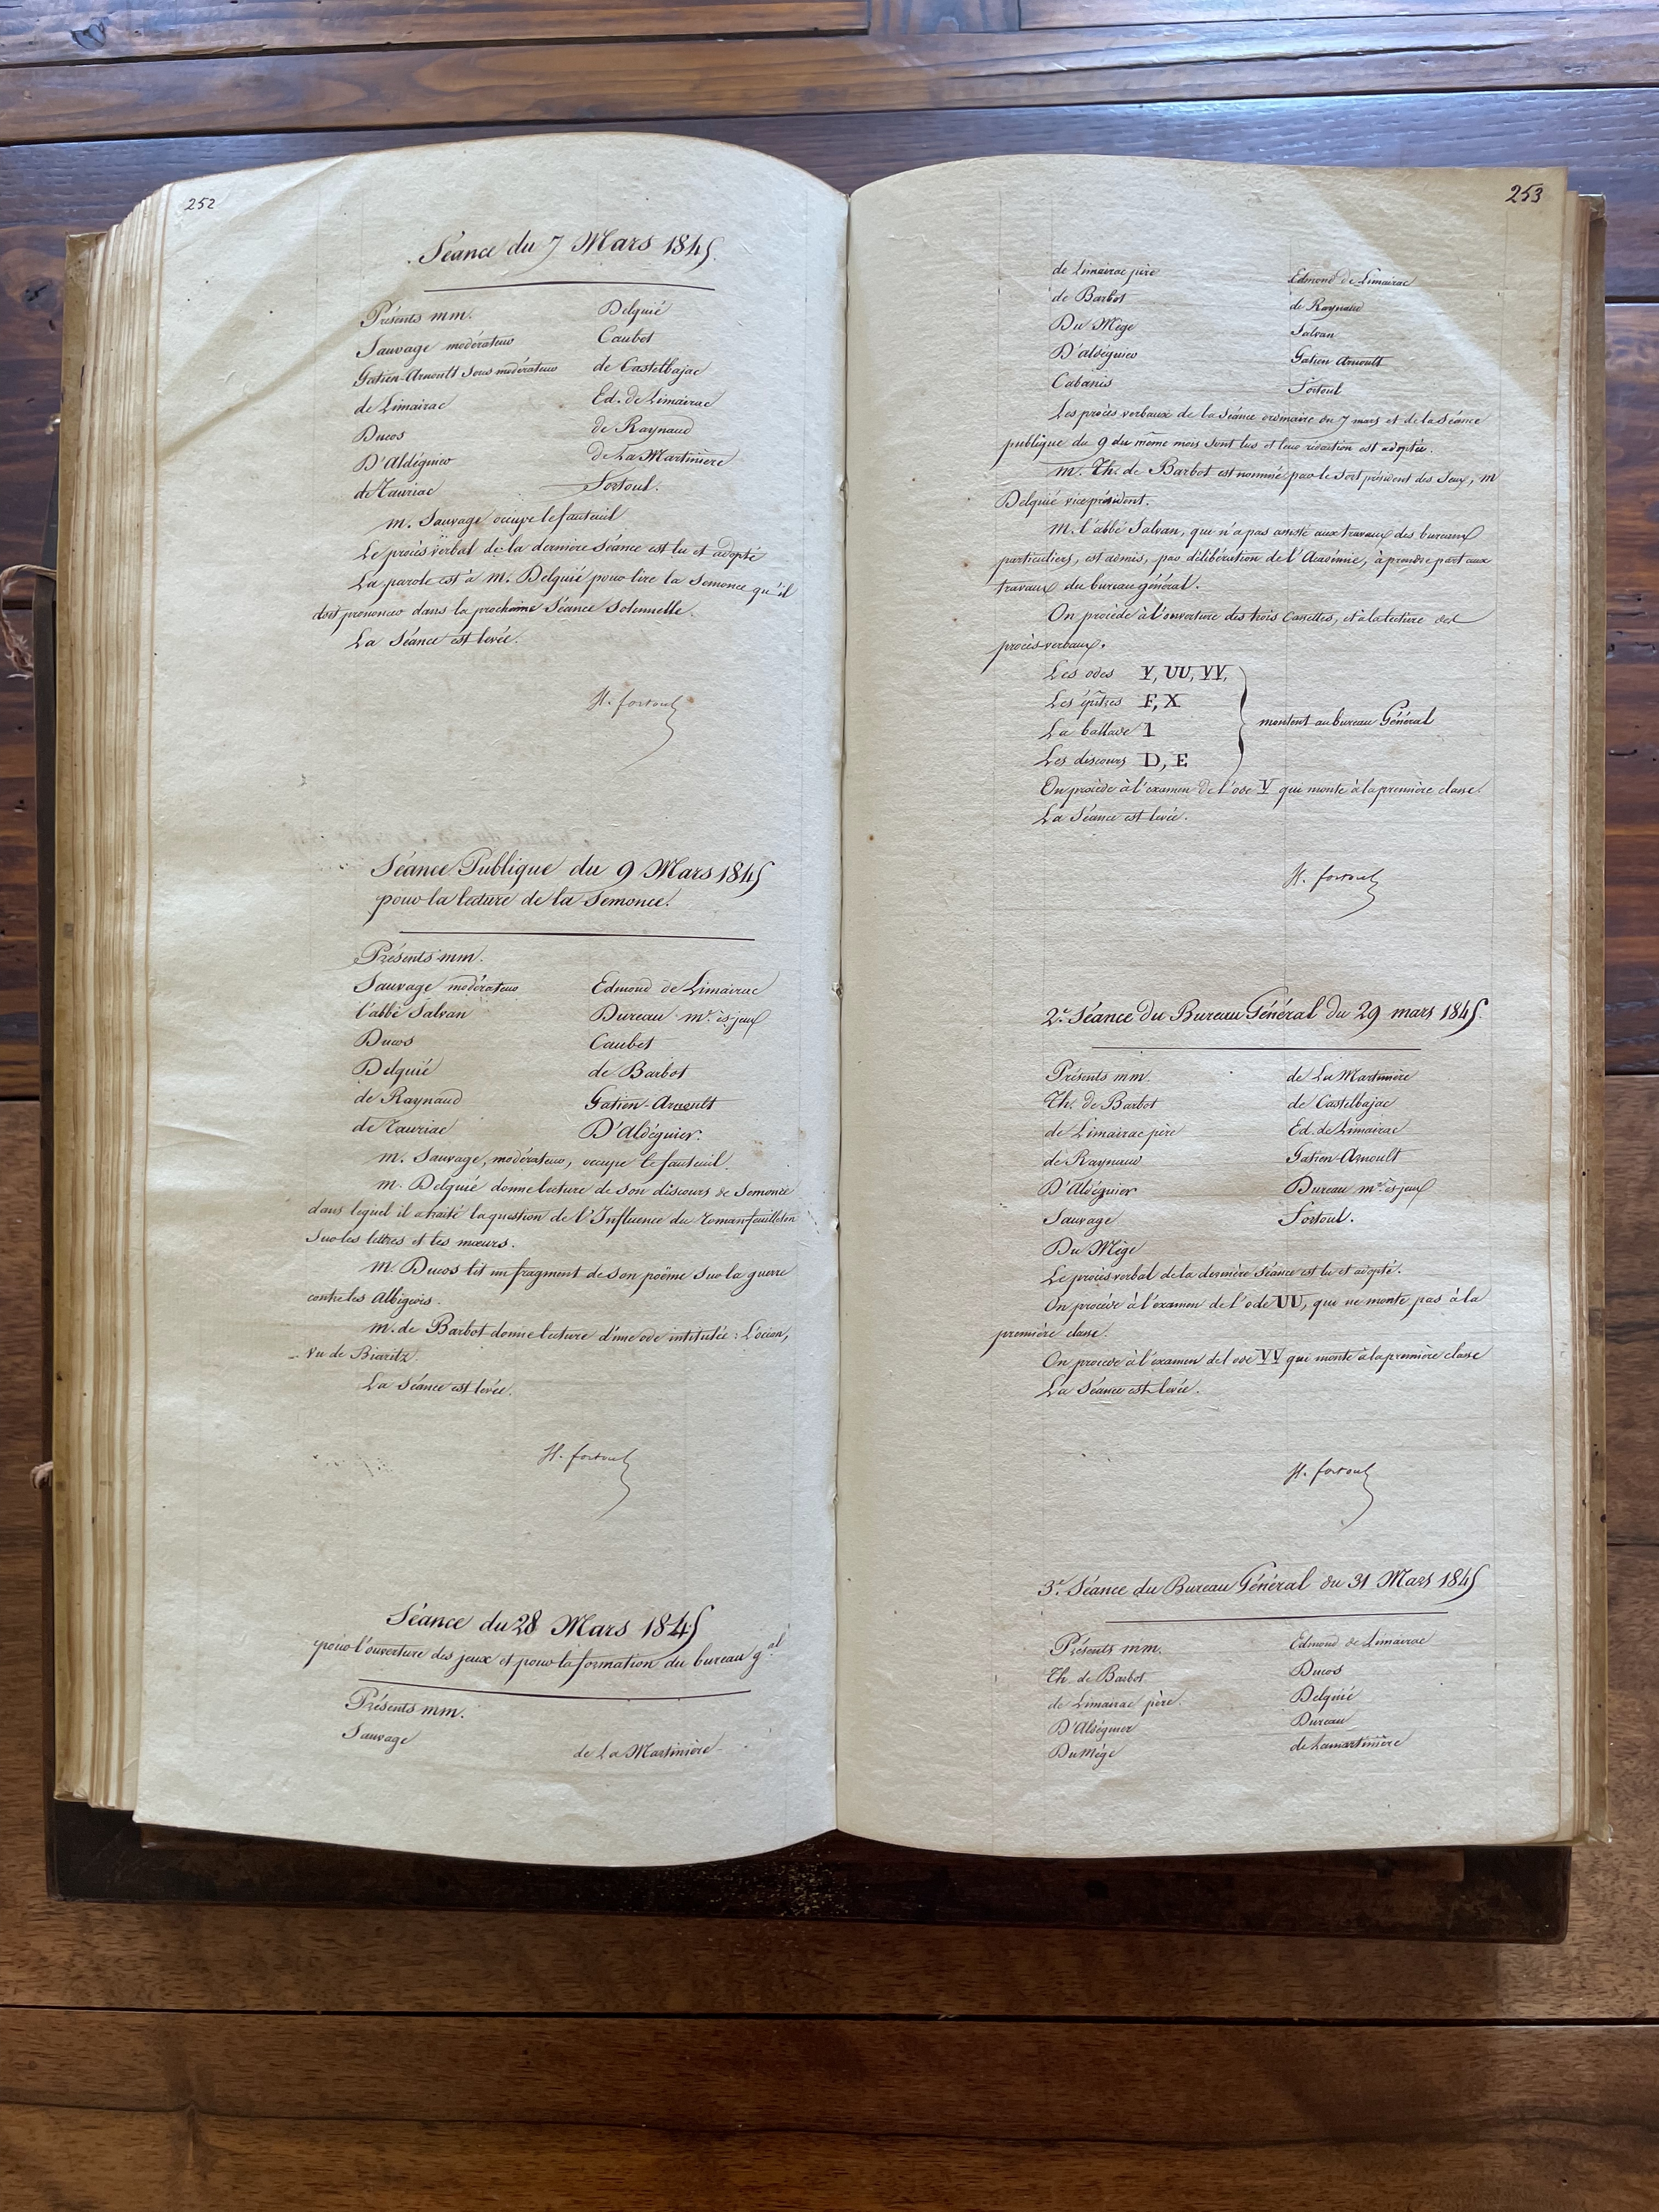 252
Séance du 7 Mars 1845.
Présents mm.
Sauvage modérateur
Gatien-Arnoult sous modérateur
de Limairac
Ducos
D'Aldéguier
de Tauriac
Delquié
Caubet
de Castelbajac
Ed. de Limairac
de Raynaud
de La Martinière
Fortoul.
M. Sauvage occupe le fauteuil
Le procès verbal de la dernière séance est lu et adopté
La parole est à M. Delquié pour lire la Semonce qu'il
doit prononcer dans la prochaine Séance Solennelle.
La Séance est levée.
H. fortoul
Séance Publique du 9 Mars 1845
pour la lecture de la Semonce.
Présents mm.
Sauvage modérateur
l'abbé Salvan
Ducos
Delquié
de Raynaud
de Tauriac
Edmond de Limairac
Dureau mre ès-jeux
Caubet
de Barbot
Gatien-Arnoult
D'Aldéguier.
M. Sauvage, modérateur, occupe le fauteuil.
M. Delquié donne lecture de son discours de Semonce
dans lequel il a traité la question de l'Influence du roman feuilleton
sur les lettres et les mœurs.
M. Ducos lit un fragment de son poëme sur la guerre
contre les Albigeois.
M. de Barbot donne lecture d'une ode intitulée : L'océan,
vu de Biaritz.
La Séance est levée.
H. fortoul
Séance du 28 Mars 1845
pour l'ouverture des jeux et pour la formation du bureau gal
Présents mm.
Sauvage
de La Martinière
253
de Limairac père
de Barbot
Du Mège
D'aldéguier
Cabanis
Edmond de Limairac
de Raynaud
Salvan
Gatien Arnoult
Fortoul
Les procès verbaux de la Séance ordinaire du 7 mars et de la Séance
publique du 9 du même mois sont lus et leur rédaction est adoptée.
M. Th. de Barbot est nommé par le sort président des Jeux, M
Delquié vice président.
M. l'abbé Salvan, qui n'a pas assisté aux travaux des bureaux
particuliers, est admis, par délibération de l'Académie, à prendre part aux
travaux du bureau général.
On procède à l'ouverture des trois Cassettes, et à la lecture des
procès-verbaux.
Les odes V, UU, VV,
Les épîtres F, X
La ballade 1
Les discours D, E
montent au bureau Général
On procède à l'examen de l'ode V qui monte à la première classe.
La Séance est levée.
H. fortoul
2e. Séance du Bureau Général du 29 mars 1845.
Présents mm.
Th. de Barbot
de Limairac père
de Raynaud
D'Aldéguier
Sauvage
Du Mège
de La Martinière
de Castelbajac
Ed. de Limairac
Gatien-Arnoult
Dureau mre ès-jeux
Fortoul.
Le procès verbal de la dernière séance est lu et adopté.
On procède à l'examen de l'ode UU, qui ne monte pas à la
première classe.
On procède à l'examen de l'ode VV qui monte à la première classe
La Séance est levée.
H. fortoul
3e. Séance du Bureau Général du 31 Mars 1845
Présents mm.
Th. de Barbot
de Limairac père.
D'Aldéguier
Du Mège
Edmond de Limairac
Ducos
Delquié
Dureau
de Lamartinière